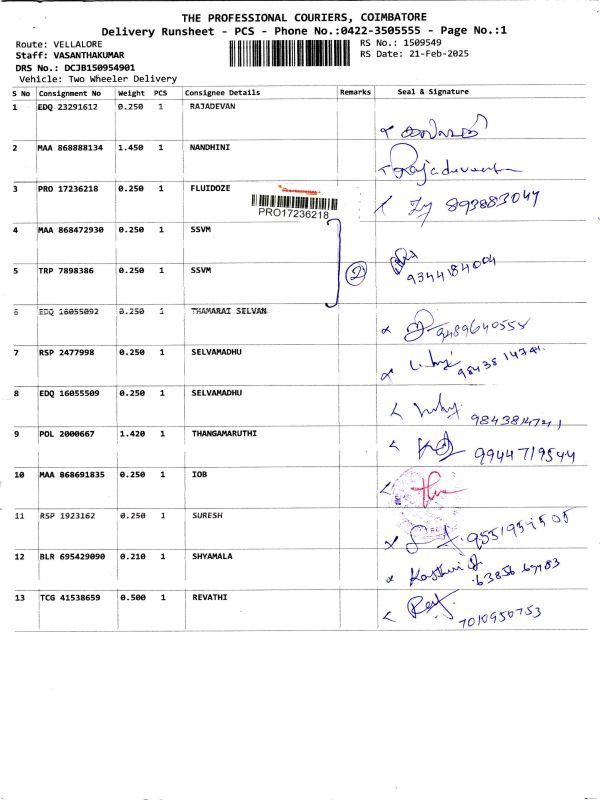 THE PROFESSIONAL COURIERS, COIMBATORE
Delivery Runsheet - PCS - Phone No.:0422-3505555 - Page No.:1
Route: VELLALORE
RS No.: 1509549
Staff: VASANTHAKUMAR
RS Date: 21-Feb-2025
DRS No.: DCJB150954901
Vehicle: Two Wheeler Delivery
S No Consignment No Weight PCS Consignee Details Remarks Seal & Signature
1 EDQ 23291612 0.250 1 RAJADEVAN
2 MAA 868888134 1.450 1 NANDHINI
3 PRO 17236218 0.250 1 FLUIDOZE
PRO17236218
4 MAA 868472930 0.250 1 SSVM
5 TRP 7898386 0.250 1 SSVM 2 9344184004
6 EDQ 16055092 0.250 1 THAMARAI SELVAN 9489640558
7 RSP 2477998 0.250 1 SELVAMADHU
8 EDQ 16055509 0.250 1 SELVAMADHU 9843814741
9 POL 2000667 1.420 1 THANGAMARUTHI 9944719544
10 MAA 868691835 0.250 1 IOB
11 RSP 1923162 0.250 1 SURESH
12 BLR 695429090 0.210 1 SHYAMALA
13 TCG 41538659 0.500 1 REVATHI 7010950753